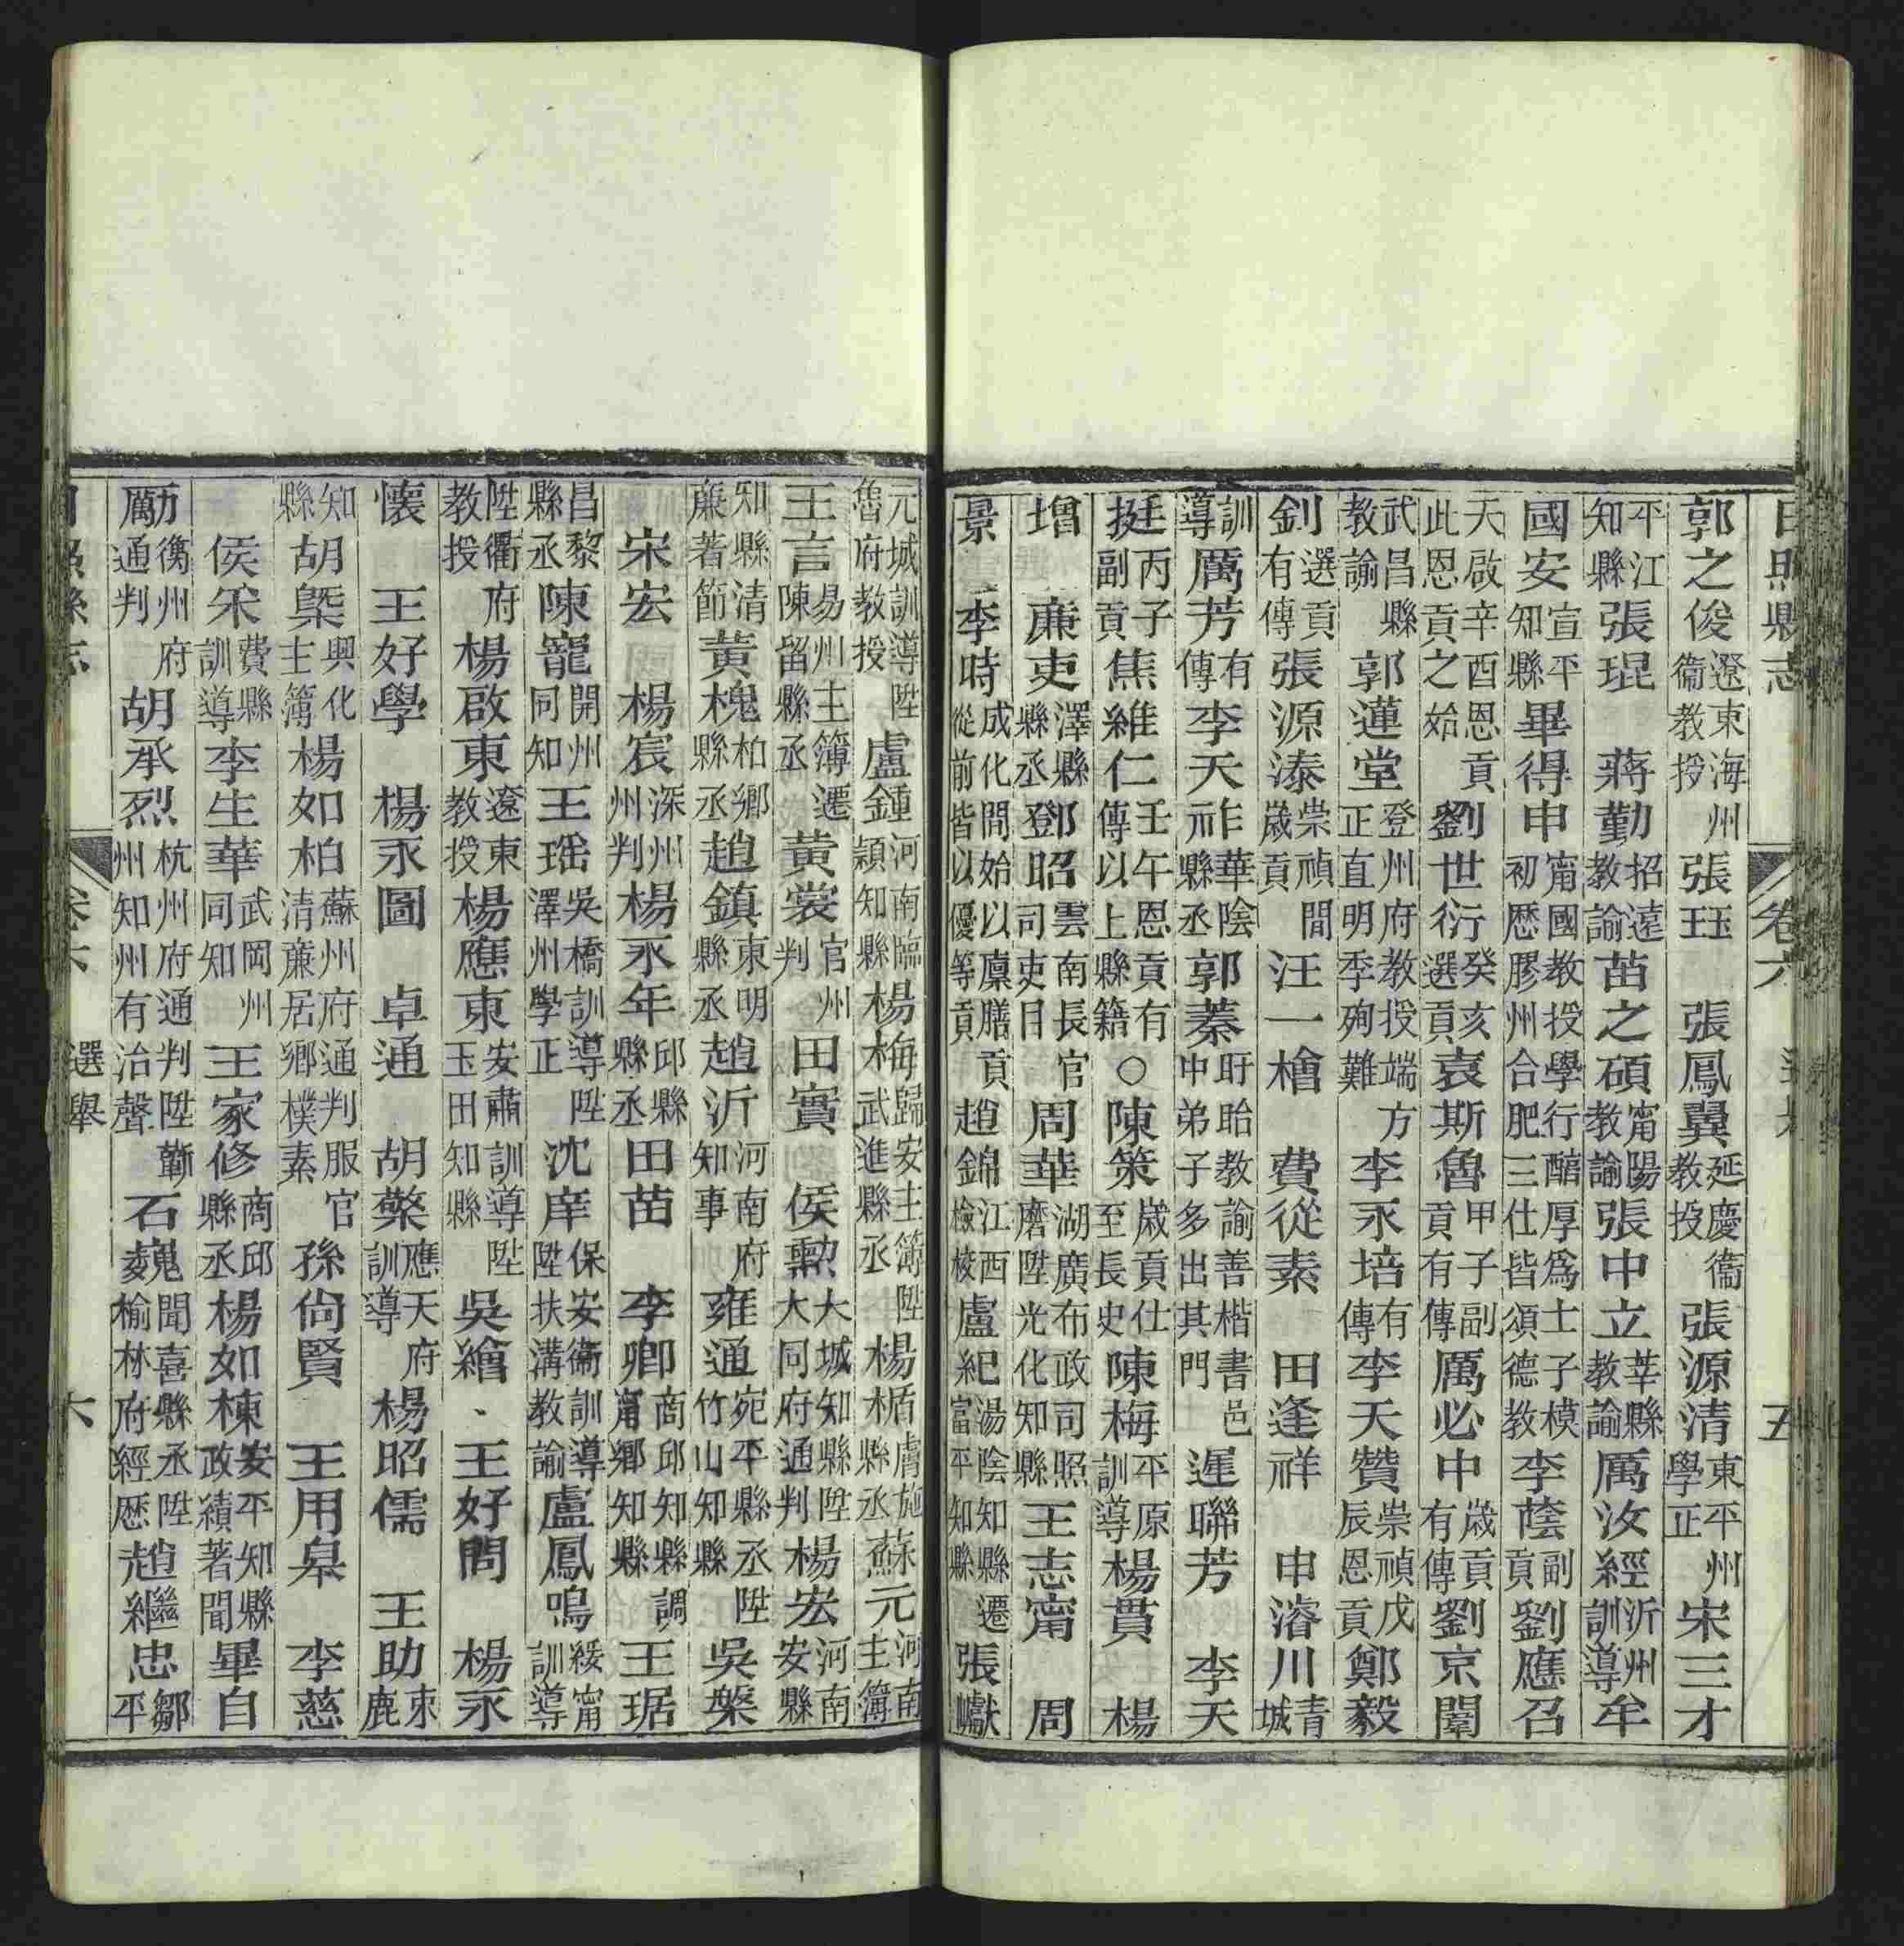 日照縣志 卷六 選舉 五
郭之俊遼東海州衞教授 張珏 張鳳翼延慶衞教授 張源清東平州學正 宋三才
平江知縣 張琨 蔣勤招遠教諭 苗之碩甯陽教諭 張中立莘縣教諭 厲汝經沂州訓導 牟
國安宣平知縣 畢得申甯國教授學行醕厚爲士子模初歷膠州合肥三仕皆頌德教 李蔭副貢 劉應召
天啟辛酉恩貢此恩貢之始 劉世衍癸亥選貢 袁斯魯甲子副貢有傳 厲必中歲貢有傳 劉京闈
武昌縣教諭 郭蓮堂登州府教授端方正直明季殉難 李永培有傳 李天贊崇禎戊辰恩貢 鄭毅
釗選貢有傳 張源溙崇禎間歲貢 汪一檜 費從素 田逢祥 申濬川青城
訓導 厲芳有傳 李天祚華陰縣丞 郭蓁盱眙教諭善楷書邑中弟子多出其門 遲聯芳 李天
挺丙子副貢 焦維仁壬午恩貢有傳以上縣籍 ○ 陳策歲貢仕至長史 陳梅平原訓導 楊貫 楊
增 廉吏澤縣縣丞 鄧昭雲南長官司吏目 周華湖廣布政司照磨陞光化知縣 王志甯 周
景 李時成化間始以廩膳貢從前皆以優等貢 趙錦江西檢校 盧紀湯陰知縣遷富平知縣 張巘
元城訓導陞魯府教授 盧鍾河南臨潁知縣 楊梅歸安主簿陞武進縣丞 楊楯膚施縣丞 蘇元河南主簿
王言易州主簿遷陳留縣丞 黃裳官州判 田實 侯勲大城知縣陞大同府通判 楊宏河南安縣
知縣清廉著節 黃槐柏鄉縣丞 趙鎮東明縣丞 趙沂河南府知事 雍通宛平縣丞陞竹山知縣 吳槃
宋宏 楊宸深州州判 楊永年邱縣縣丞 田苗 李卿商邱知縣調甯鄉知縣 王琚
昌黎縣丞 陳寵開州同知 王瑶吳橋訓導陞澤州學正 沈庠保安衞訓導陞扶溝教諭 盧鳳鳴綏甯訓導
陞衢府教授 楊啟東遼東教授 楊應東安肅訓導陞玉田知縣 吳繪 王好問 楊永
懷 王好學 楊永圖 卓通 胡檠應天府訓導 楊昭儒 王助束鹿
知縣 胡槩興化主簿 楊如柏蘇州府通判服官清廉居鄉樸素 孫尙賢 王用皋 李慈
侯宷費縣訓導 李生華武岡州同知 王家修商邱縣丞 楊如棟安平知縣政績著聞 畢自
勵衡州府通判 胡承烈杭州府通判陞州知州有治聲 石巍聞喜縣丞陞榆林府經歷 趙繼忠鄒平
日照縣志 卷六 選舉 六